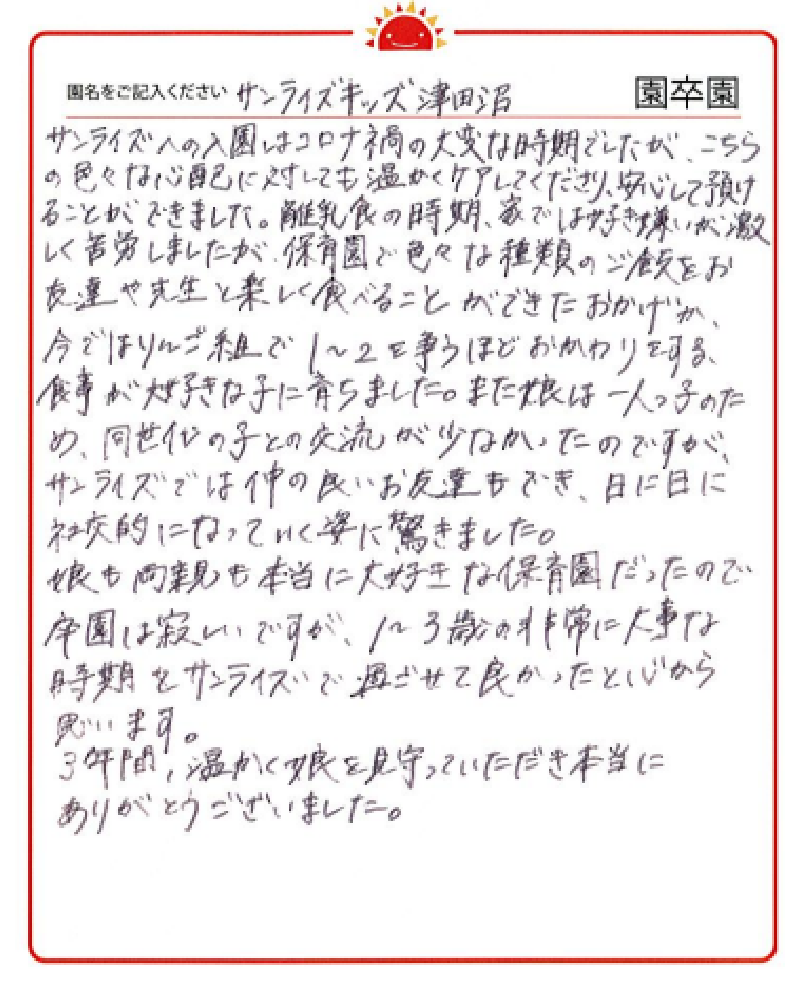 園名をご記入ください サンライズキッズ津田沼 園卒園
サンライズへの入園はコロナ禍の大変な時期でしたが、こちら
の色々な心配に対しても温かくケアしてくださり、安心して預け
ることができました。離乳食の時期、家では好き嫌いが激
しく苦労しましたが、保育園で色々な種類のご飯をお
友達や先生と楽しく食べることができたおかげか、
今ではりんご組で1~2を争うほどおかわりをする、
食事が大好きな子に育ちました。また娘は一人っ子のた
め、同世代の子との交流が少なかったのですが、
サンライズでは仲の良いお友達もでき、日に日に
社交的になっていく姿に驚きました。
娘も両親も本当に大好きな保育園だったので
卒園は寂しいですが、1~3歳の非常に大事な
時期をサンライズで過ごせて良かったと心から
思います。
3年間,温かく娘を見守っていただき本当に
ありがとうございました。